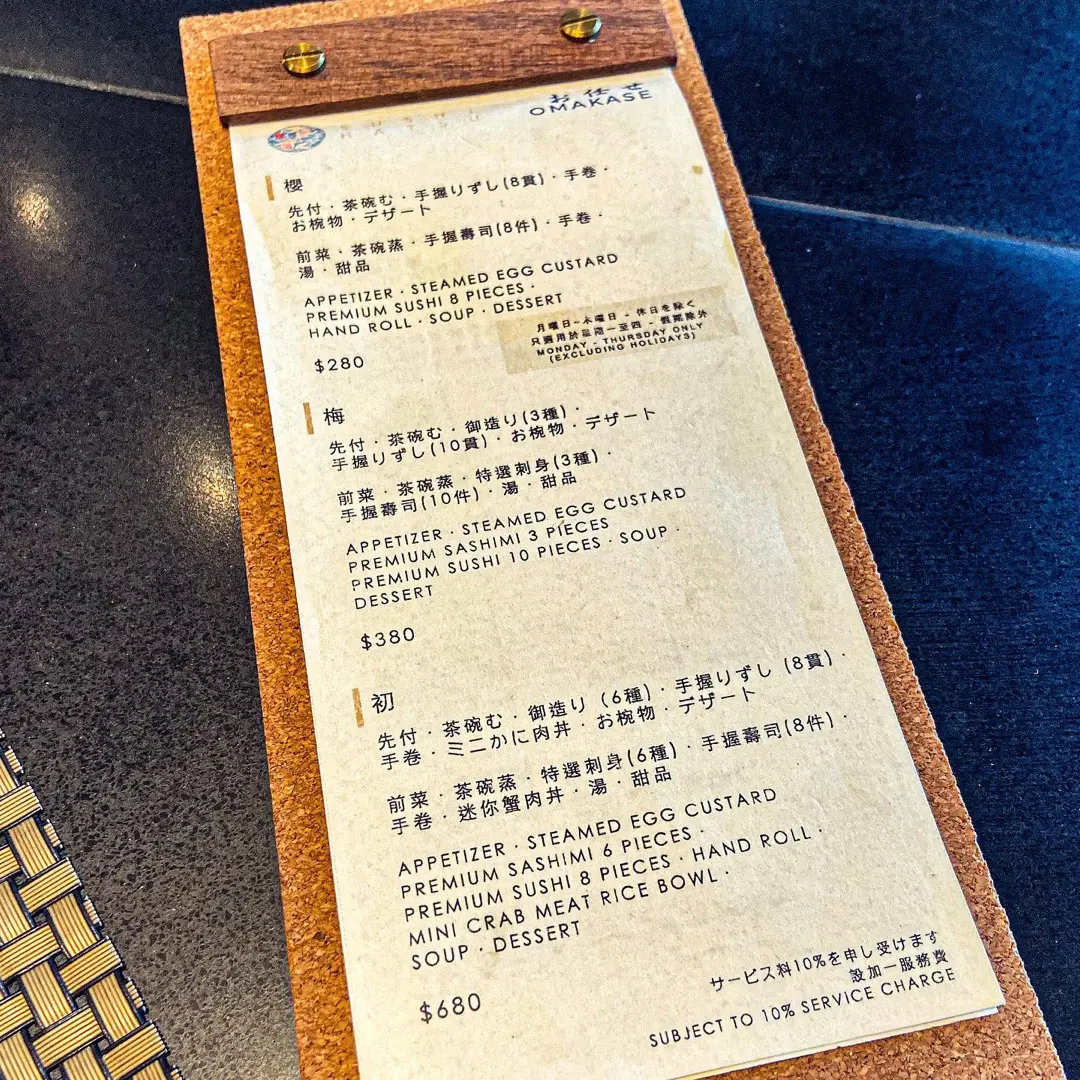 お任せ
OMAKASE
櫻
先付・茶碗む・手握りずし(8貫)・手巻・
お椀物・デザート
前菜・茶碗蒸・手握壽司(8件)・手卷・
湯・甜品
APPETIZER · STEAMED EGG CUSTARD
PREMIUM SUSHI 8 PIECES ·
HAND ROLL · SOUP · DESSERT
月曜日~木曜日 - 休日を除く
只適用於星期一至四 - 假期除外
MONDAY - THURSDAY ONLY
(EXCLUDING HOLIDAYS)
$280
梅
先付・茶碗む・御造り(3種)・
手握りずし(10貫)・お椀物・デザート
前菜・茶碗蒸・特選刺身(3種)・
手握壽司(10件)・湯・甜品
APPETIZER · STEAMED EGG CUSTARD
PREMIUM SASHIMI 3 PIECES
PREMIUM SUSHI 10 PIECES · SOUP ·
DESSERT
$380
初
先付・茶碗む・御造り（6種)・手握りずし（8貫)・
手巻・ミニかに肉丼・お椀物・デザート
前菜・茶碗蒸・特選刺身(6種)・手握壽司(8件)・
手卷・迷你蟹肉丼・湯・甜品
APPETIZER · STEAMED EGG CUSTARD
PREMIUM SASHIMI 6 PIECES ·
PREMIUM SUSHI 8 PIECES · HAND ROLL ·
MINI CRAB MEAT RICE BOWL ·
SOUP · DESSERT
$680
サービス料10%を申し受けます
設加一服務費
SUBJECT TO 10% SERVICE CHARGE